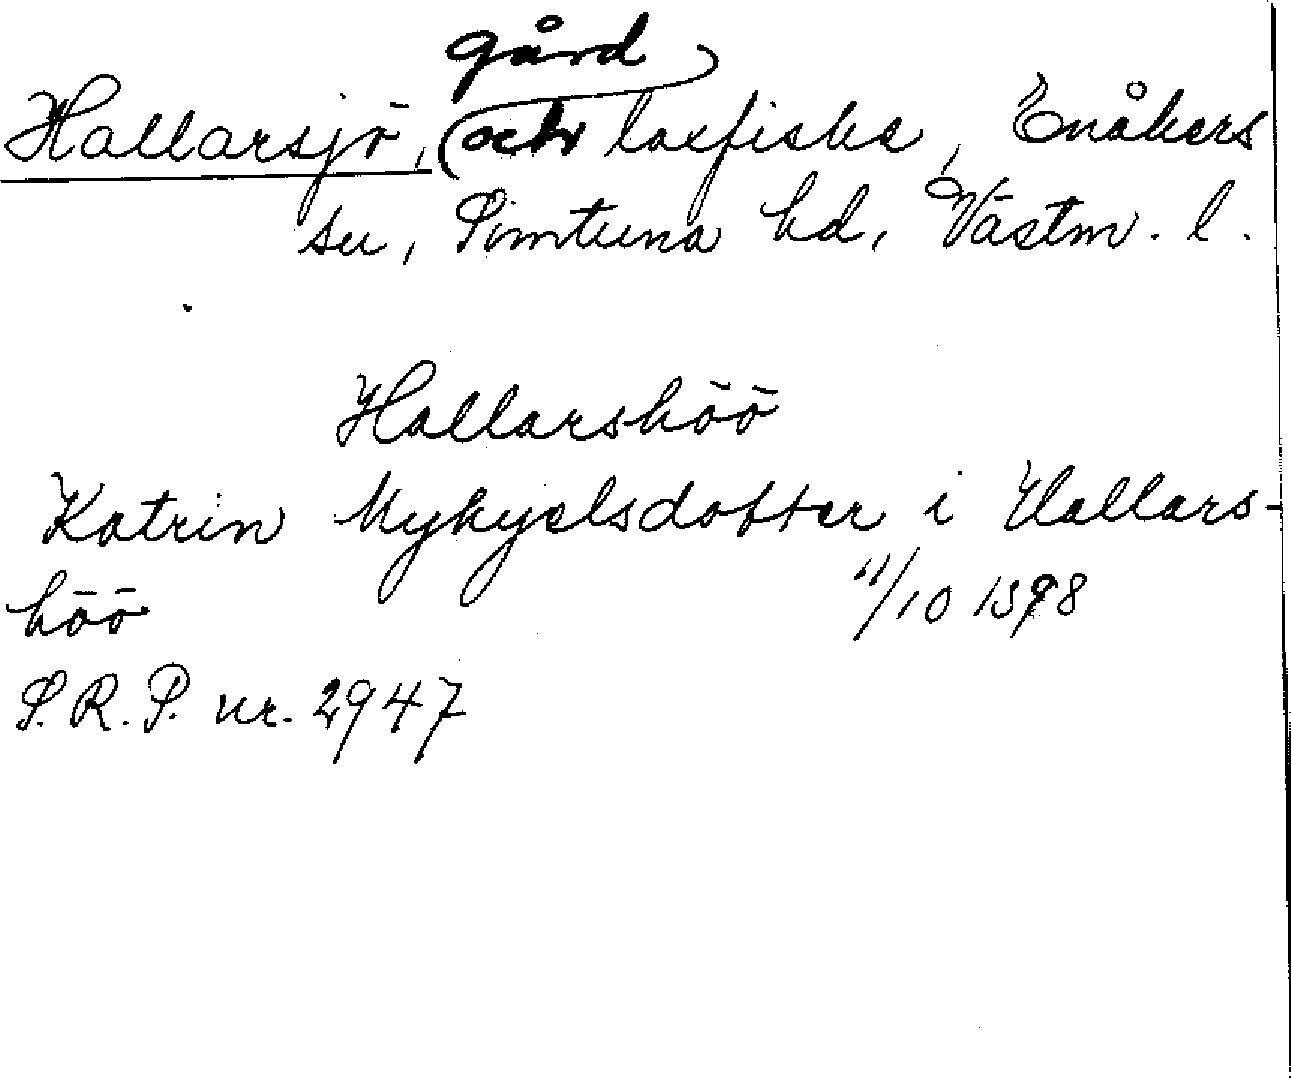 gård
Hallarsjö, och laxfiske, Enåkers
sn, Simtuna hd, Västm. l.
Hallarshöö
Katrin Mykyelsdotter i Hallars-
höö 11/10 1398
S.R.P. nr. 2947